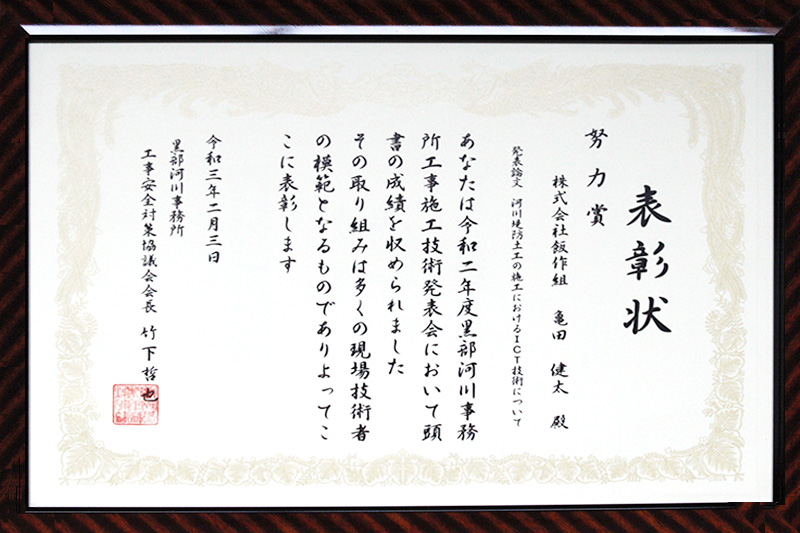 表彰状
努力賞
株式会社飯作組 亀田 健太 殿
発表論文 河川堤防土工の施工におけるICT技術について
あなたは令和二年度黒部河川事務
所工事施工技術発表会において頭
書の成績を収められました
その取り組みは多くの現場技術者
の模範となるものでありよってこ
こに表彰します
令和三年二月三日
黒部河川事務所
工事安全対策協議会会長 竹下哲也